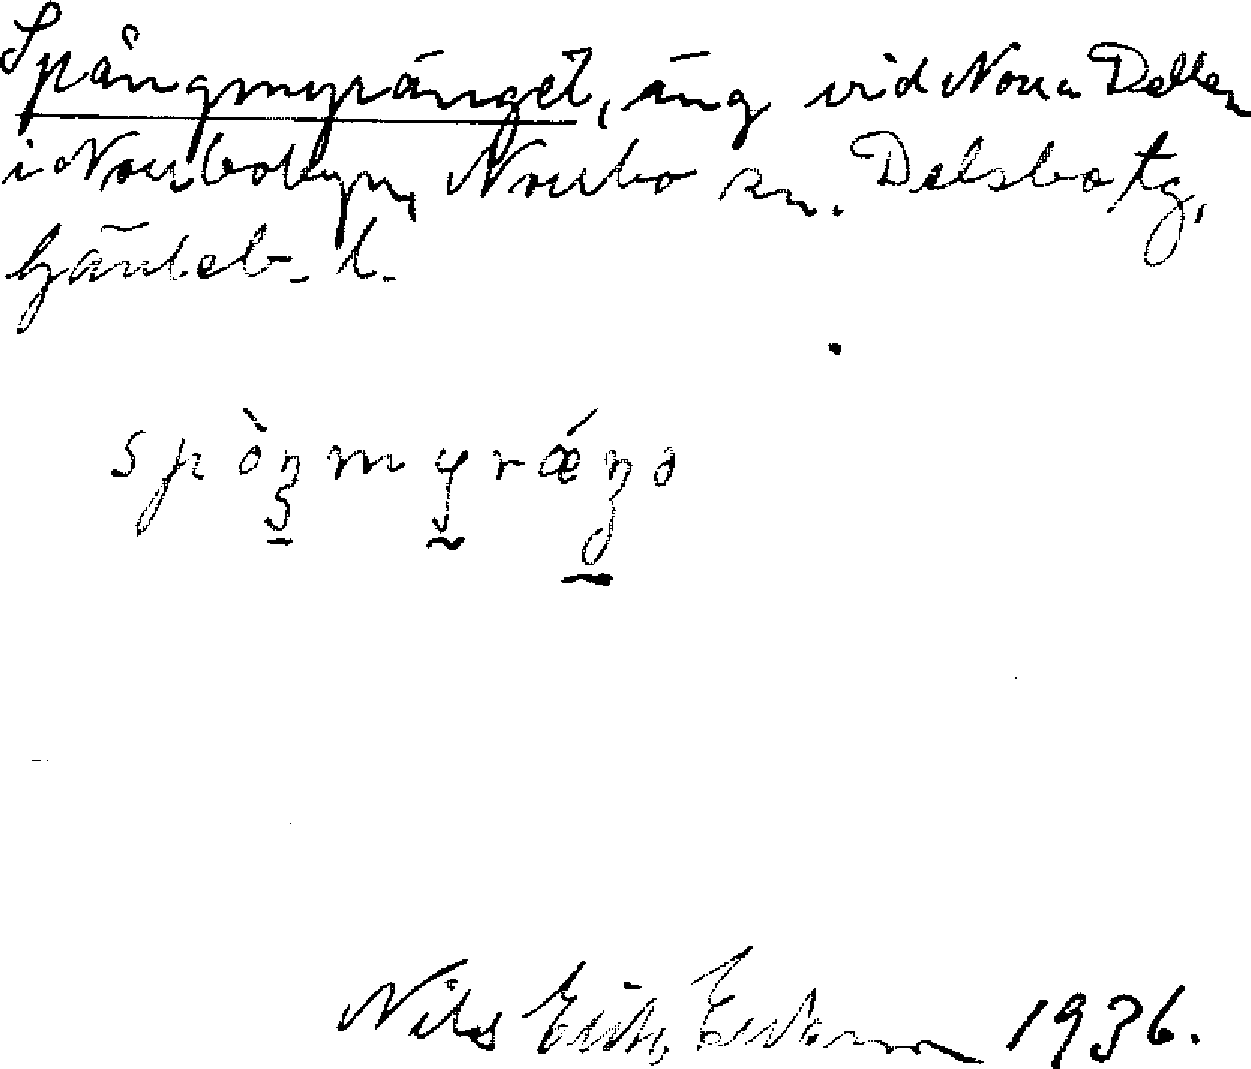 Spångmyränget, äng vid Norra Dellen
i Norrbobyn, Norrbo sn. Delsbo tg,
Gävleb. l.
spòŋmyrǽŋə
Nils 1936.